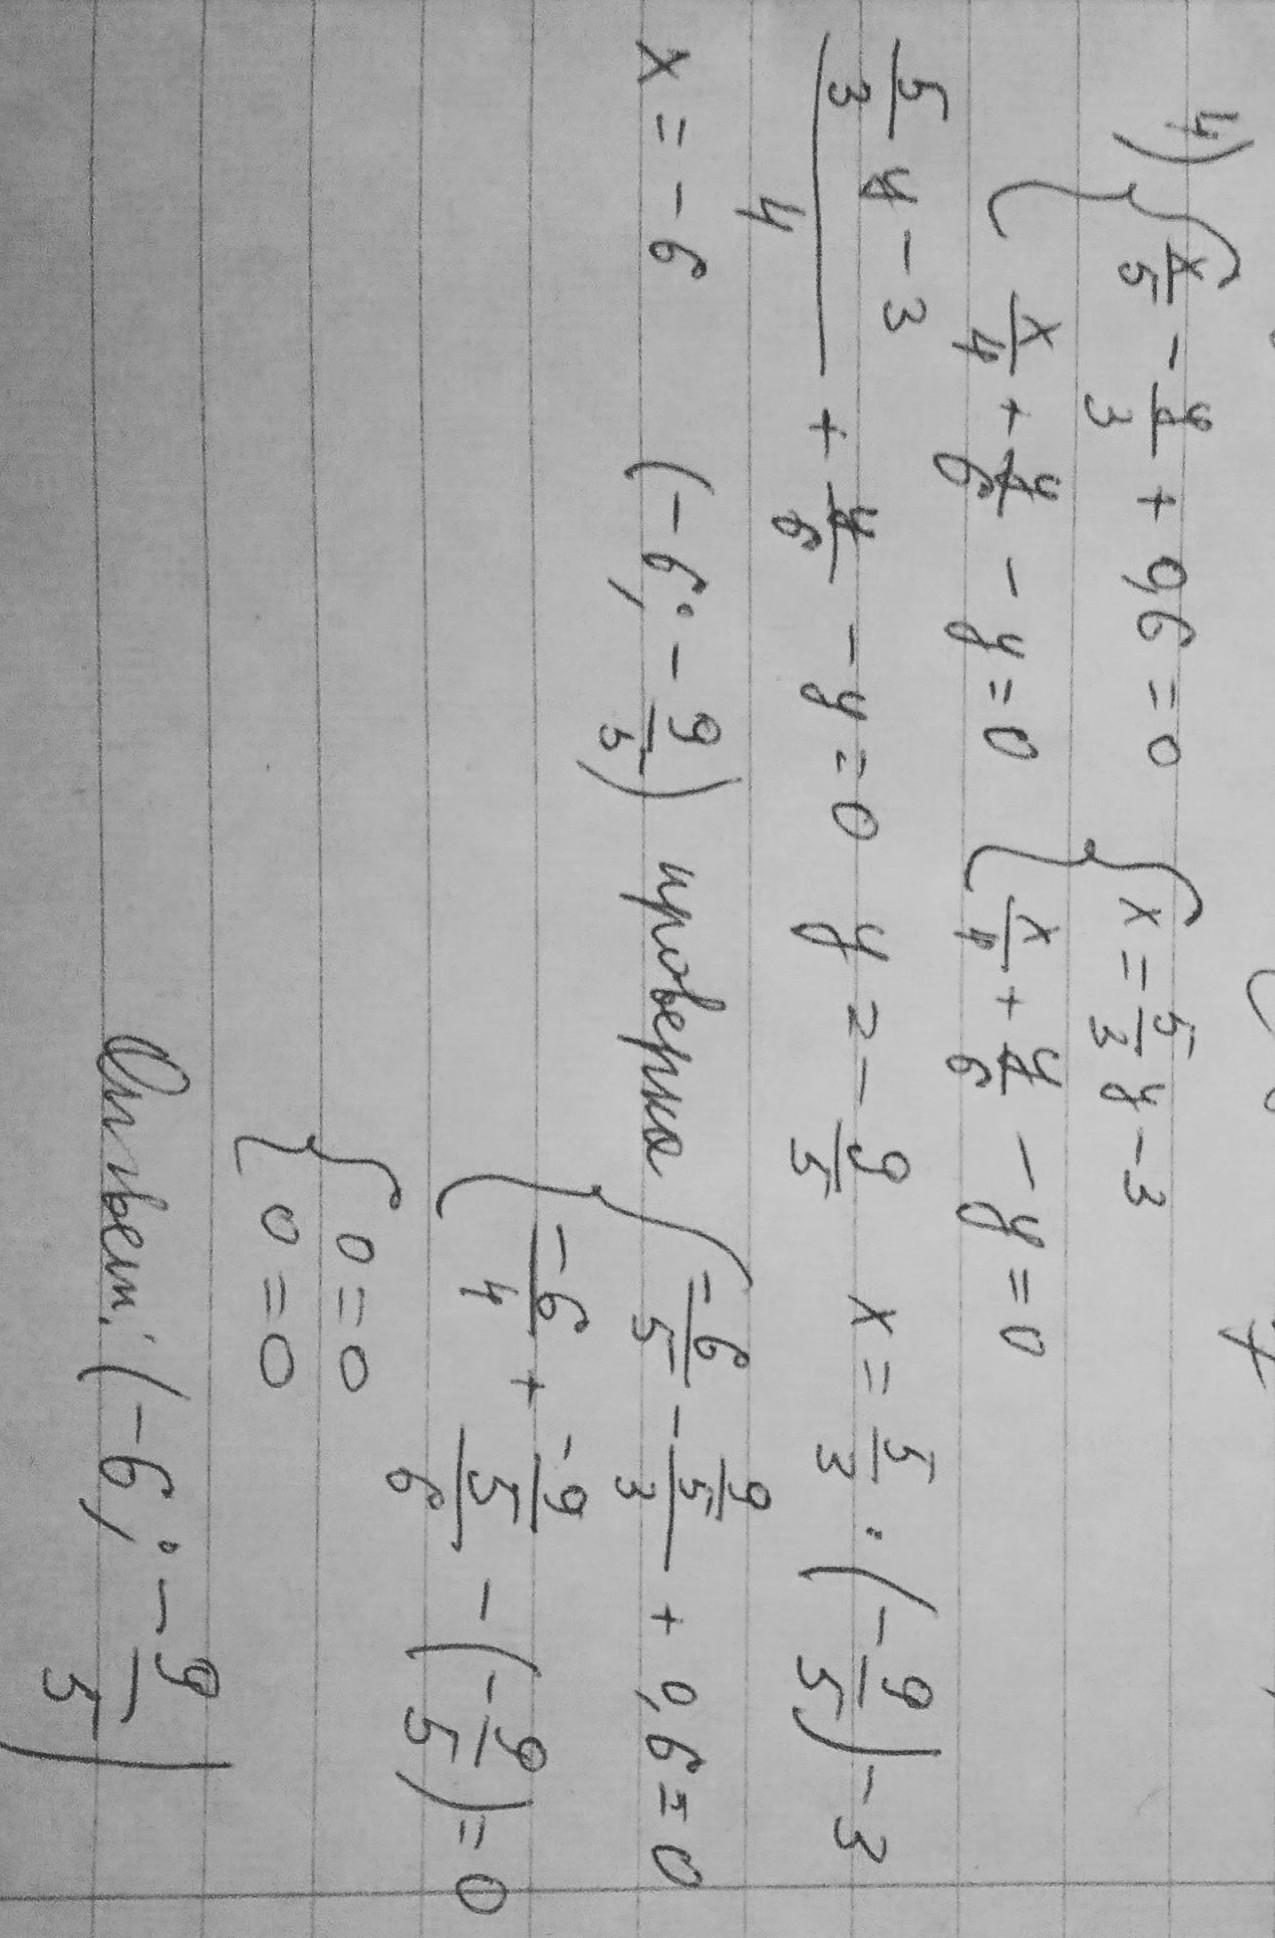 4) { x/5 - y/3 + 0,6 = 0 { x = 5/3 y - 3
{ x/4 + y/6 - y = 0 { x/4 + y/6 - y = 0
(5/3 y - 3)/4 + y/6 - y = 0 y = - 9/5 x = 5/3 · (- 9/5) - 3
x = - 6 (- 6; - 9/5) проверка { -6/5 - (9/5)/3 + 0,6 = 0
{ -6/4 + (-9/5)/6 - (- 9/5) = 0
{ 0 = 0
{ 0 = 0
Ответ: (-6; - 9/5)